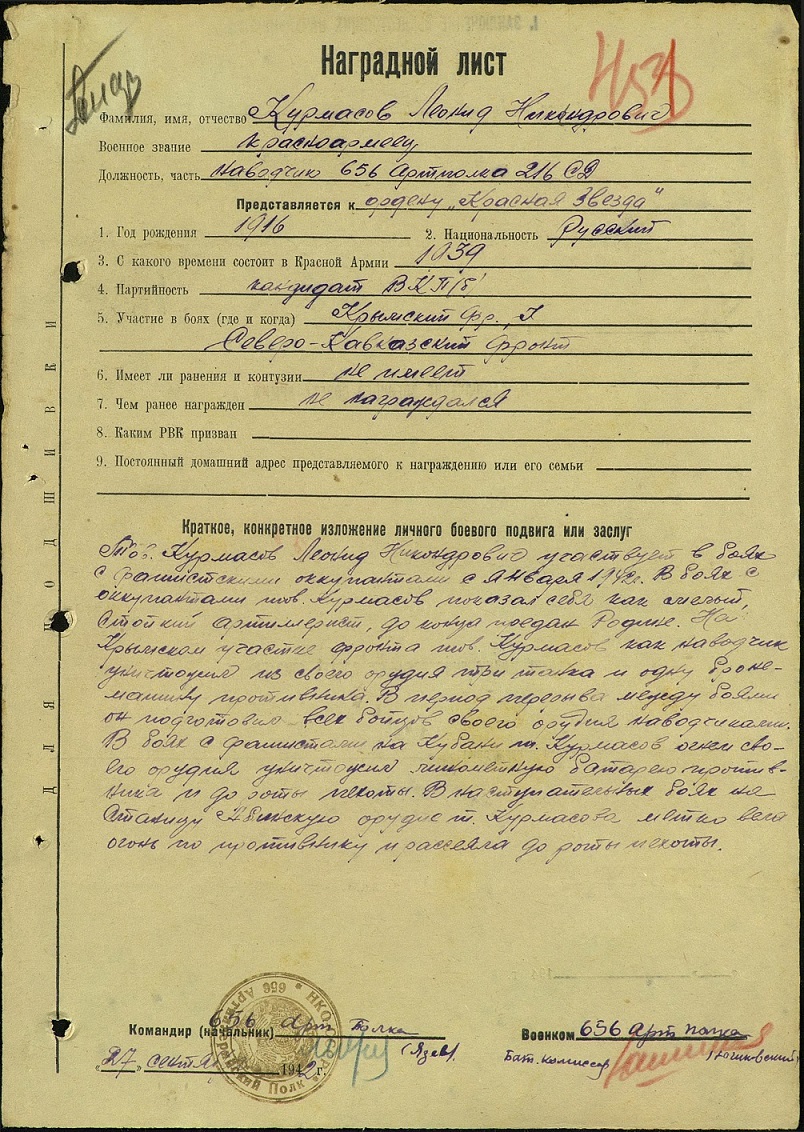 Наградной лист
Фамилия, имя, отчество Курмасов Леонид Никондрович
Военное звание красноармеец
Должность, часть наводчик 656 Артполка 216 СД
Представляется к ордену „Красная Звезда"
1. Год рождения 1916 2. Национальность Русский
3. С какого времени состоит в Красной Армии 1939
4. Партийность кандидат ВКП/б/
5. Участие в боях (где и когда) Крымский фр.,
Северо-Кавказский фронт
6. Имеет ли ранения и контузии не имеет
7. Чем ранее награжден не награждался
8. Каким РВК призван
9. Постоянный домашний адрес представляемого к награждению или его семьи
ДЛЯ ПОДШИВКИ
Краткое, конкретное изложение личного боевого подвига или заслуг
Тов. Курмасов Леонид Никондрович участвует в боях
с фашистскими оккупантами с января 1942г. В боях с
оккупантами тов. Курмасов показал себя как смелый,
стойкий артиллерист, до конца предан Родине. На
Крымском участке фронта тов. Курмасов как наводчик
уничтожил из своего орудия три танка и одну броне-
машину противника. В период перерыва между боями
он подготовил всех бойцов своего орудия наводчиками.
В боях с фашистами на Кубани т. Курмасов огнем сво-
его орудия уничтожил минометную батарею против-
ника и до роты пехоты. В наступательных боях на
станицу орудие т. Курмасова метко вело
огонь по противнику и рассеяло до роты пехоты.
Командир (начальник) 656 Арт Полка
(Язев)
„27" сентя 1942 г.
Военком 656 Арт полка
Бат. комиссар